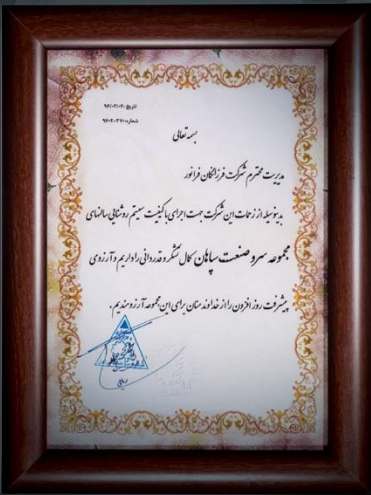 تاریخ: ۹۶/۰۲/۰۲
شماره: ۹۶۰۲۰۳۷۰
بسمه تعالی
مدیریت محترم شرکت فرزانگان فرانور
بدینوسیله از زحمات این شرکت جهت اجرای با کیفیت سیستم روشنایی سالنهای
مجموعه سرو صنعت سپاهان کمال تشکر و قدردانی را داریم و آرزوی
پیشرفت روز افزون را از خداوند منان برای این مجموعه آرزومندیم.